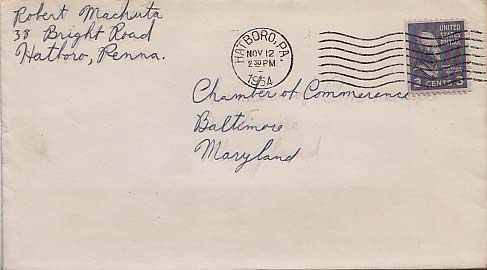 Robert Machuta
38 Bright Road
Hatboro, Penna.
HATBORO, PA.
NOV 12
2 30 PM
1954
UNITED
STATES
POSTAGE
3 CENTS 3
Chamber of Commerence
Baltimore
Maryland